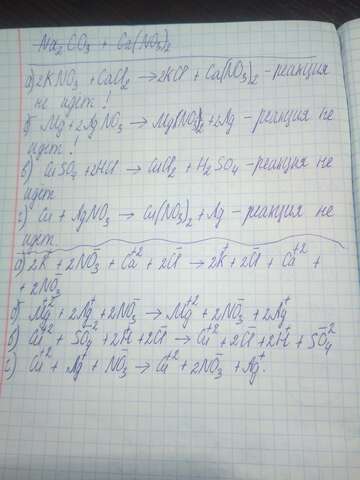 Na₂CO₃ + Ca(NO₃)₂
а) 2KNO₃ + CaCl₂ → 2KCl + Ca(NO₃)₂ - реакция
не идет!
б) Mg + 2AgNO₃ → Mg(NO₃)₂ + 2Ag - реакция не
идет!
в) CuSO₄ + 2HCl → CuCl₂ + H₂SO₄ - реакция не
идет
г) Cu + AgNO₃ → Cu(NO₃)₂ + Ag - реакция не
идет.
а) 2K⁺ + 2NO₃⁻ + Ca⁺² + 2Cl⁻ → 2K⁺ + 2Cl⁻ + Ca⁺² +
+ 2NO₃⁻
б) Mg⁺² + 2Ag⁺ + 2NO₃⁻ → Mg⁺² + 2NO₃⁻ + 2Ag⁺
в) Cu⁺² + SO₄⁻² + 2H⁺ + 2Cl⁻ → Cu⁺² + 2Cl⁻ + 2H⁺ + SO₄⁻²
г) Cu⁺² + Ag⁺ + NO₃⁻ → Cu⁺² + 2NO₃⁻ + Ag⁺.